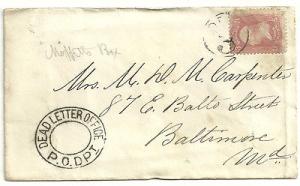 Moffetts Box
Mrs. M. D. M. Carpenter
87 E. Balto Street
Baltimore
Md
DEAD LETTER OFFICE
P.O.DPT.